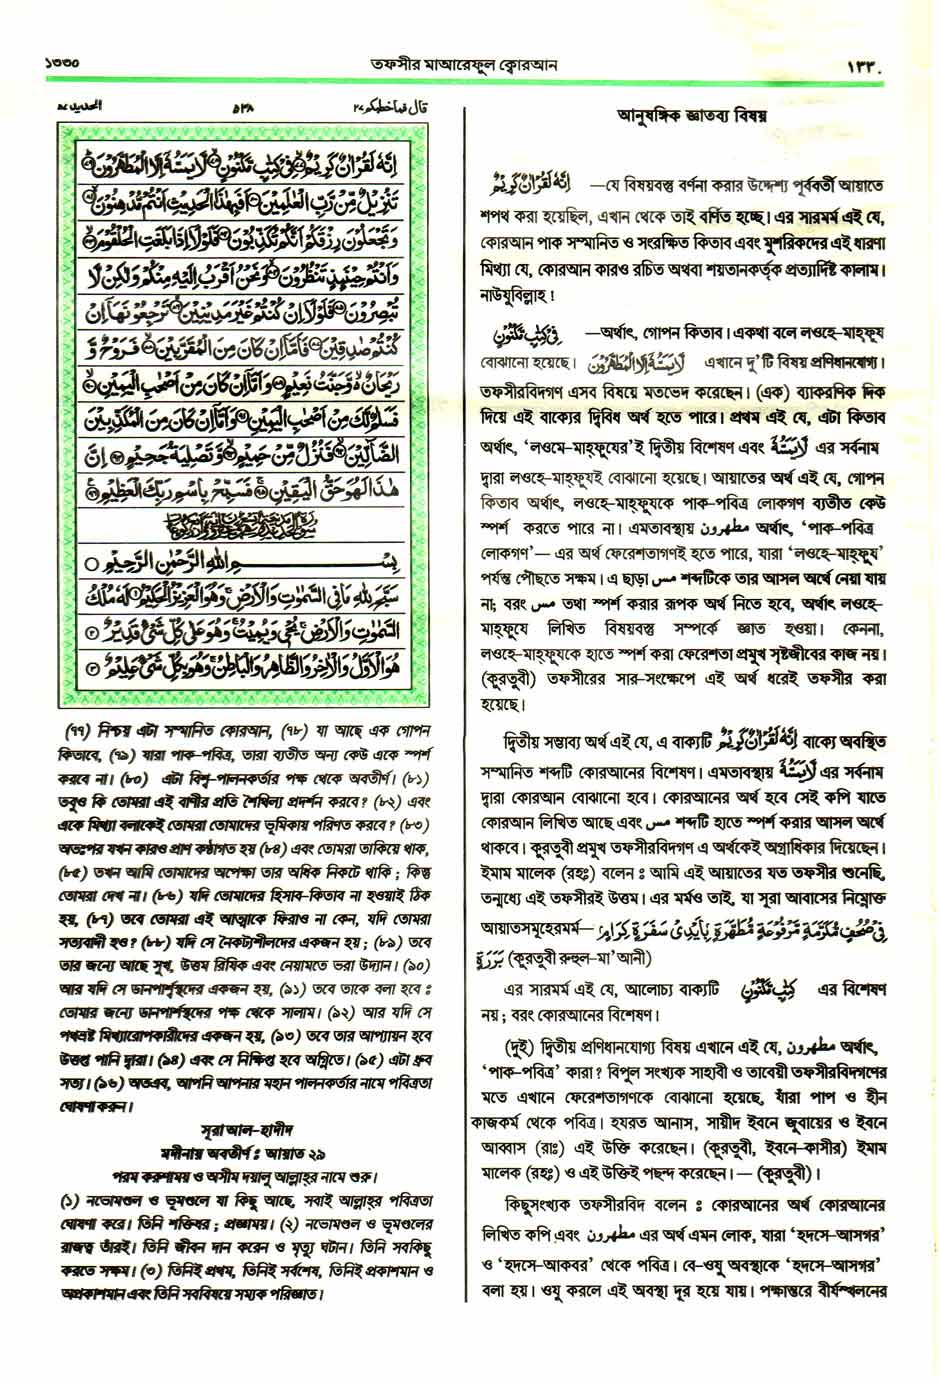 ১৩৩০
তফসীর মাআরেফুল ক্বোরআন
١٣٣٠
الحديد ٥٧
٥٣٨
قال فما خطبكم ٢٧
اِنَّهٗ لَقُرْاٰنٌ كَرِيْمٌ ﴿٧٧﴾ فِيْ كِتٰبٍ مَّكْنُوْنٍ ﴿٧٨﴾ لَّا يَمَسُّهٗٓ اِلَّا الْمُطَهَّرُوْنَ ﴿٧٩﴾
تَنْزِيْلٌ مِّنْ رَّبِّ الْعٰلَمِيْنَ ﴿٨٠﴾ اَفَبِهٰذَا الْحَدِيْثِ اَنْتُمْ مُّدْهِنُوْنَ ﴿٨١﴾
وَتَجْعَلُوْنَ رِزْقَكُمْ اَنَّكُمْ تُكَذِّبُوْنَ ﴿٨٢﴾ فَلَوْلَآ اِذَا بَلَغَتِ الْحُلْقُوْمَ ﴿٨٣﴾
وَاَنْتُمْ حِيْنَىِٕذٍ تَنْظُرُوْنَ ﴿٨٤﴾ وَنَحْنُ اَقْرَبُ اِلَيْهِ مِنْكُمْ وَلٰكِنْ لَّا
تُبْصِرُوْنَ ﴿٨٥﴾ فَلَوْلَآ اِنْ كُنْتُمْ غَيْرَ مَدِيْنِيْنَ ﴿٨٦﴾ تَرْجِعُوْنَهَآ اِنْ
كُنْتُمْ صٰدِقِيْنَ ﴿٨٧﴾ فَاَمَّآ اِنْ كَانَ مِنَ الْمُقَرَّبِيْنَ ﴿٨٨﴾ فَرَوْحٌ وَّ
رَيْحَانٌ ەۙ وَّجَنَّتُ نَعِيْمٍ ﴿٨٩﴾ وَاَمَّآ اِنْ كَانَ مِنْ اَصْحٰبِ الْيَمِيْنِ ﴿٩٠﴾
فَسَلٰمٌ لَّكَ مِنْ اَصْحٰبِ الْيَمِيْنِ ﴿٩١﴾ وَاَمَّآ اِنْ كَانَ مِنَ الْمُكَذِّبِيْنَ
الضَّآلِّيْنَ ﴿٩٢﴾ فَنُزُلٌ مِّنْ حَمِيْمٍ ﴿٩٣﴾ وَّتَصْلِيَةُ جَحِيْمٍ ﴿٩٤﴾ اِنَّ
هٰذَا لَهُوَ حَقُّ الْيَقِيْنِ ﴿٩٥﴾ فَسَبِّحْ بِاسْمِ رَبِّكَ الْعَظِيْمِ ﴿٩٦﴾
بِسْــــــمِ اللّٰهِ الرَّحْمٰنِ الرَّحِيْمِ ○
سَبَّحَ لِلّٰهِ مَا فِي السَّمٰوٰتِ وَالْاَرْضِ ۚ وَهُوَ الْعَزِيْزُ الْحَكِيْمُ ﴿١﴾ لَهٗ مُلْكُ
السَّمٰوٰتِ وَالْاَرْضِ ۚ يُحْيٖ وَيُمِيْتُ ۚ وَهُوَ عَلٰى كُلِّ شَيْءٍ قَدِيْرٌ ﴿٢﴾
هُوَ الْاَوَّلُ وَالْاٰخِرُ وَالظَّاهِرُ وَالْبَاطِنُ ۚ وَهُوَ بِكُلِّ شَيْءٍ عَلِيْمٌ ﴿٣﴾
(৭৭) নিশ্চয় এটা সম্মানিত কোরআন, (৭৮) যা আছে এক গোপন
কিতাবে, (৭৯) যারা পাক-পবিত্র, তারা ব্যতীত অন্য কেউ একে স্পর্শ
করবে না। (৮০) এটা বিশ্ব-পালনকর্তার পক্ষ থেকে অবতীর্ণ। (৮১)
তবুও কি তোমরা এই বাণীর প্রতি শৈথিল্য প্রদর্শন করবে? (৮২) এবং
একে মিথ্যা বলাকেই তোমরা তোমাদের ভূমিকায় পরিণত করবে? (৮৩)
অতঃপর যখন কারও প্রাণ কণ্ঠাগত হয় (৮৪) এবং তোমরা তাকিয়ে থাক,
(৮৫) তখন আমি তোমাদের অপেক্ষা তার অধিক নিকটে থাকি ; কিন্তু
তোমরা দেখ না। (৮৬) যদি তোমাদের হিসাব-কিতাব না হওয়াই ঠিক
হয়, (৮৭) তবে তোমরা এই আত্মাকে ফিরাও না কেন, যদি তোমরা
সত্যবাদী হও? (৮৮) যদি সে নৈকট্যশীলদের একজন হয় ; (৮৯) তবে
তার জন্যে আছে সুখ, উত্তম রিযিক এবং নেয়ামতে ভরা উদ্যান। (৯০)
আর যদি সে ডানপার্শ্বস্থদের একজন হয়, (৯১) তবে তাকে বলা হবে :
তোমার জন্যে ডানপার্শ্বস্থদের পক্ষ থেকে সালাম। (৯২) আর যদি সে
পথভ্রষ্ট মিথ্যারোপকারীদের একজন হয়, (৯৩) তবে তার আপ্যায়ন হবে
উত্তপ্ত পানি দ্বারা। (৯৪) এবং সে নিক্ষিপ্ত হবে অগ্নিতে। (৯৫) এটা ধ্রুব
সত্য। (৯৬) অতএব, আপনি আপনার মহান পালনকর্তার নামে পবিত্রতা
ঘোষণা করুন।
সূরা আল-হাদীদ
মদীনায় অবতীর্ণ : আয়াত ২৯
পরম করুণাময় ও অসীম দয়ালু আল্লাহ্‌র নামে শুরু।
(১) নভোমণ্ডল ও ভূমণ্ডলে যা কিছু আছে, সবাই আল্লাহ্‌র পবিত্রতা
ঘোষণা করে। তিনি শক্তিধর ; প্রজ্ঞাময়। (২) নভোমণ্ডল ও ভূমণ্ডলের
রাজত্ব তাঁরই। তিনি জীবন দান করেন ও মৃত্যু ঘটান। তিনি সবকিছু
করতে সক্ষম। (৩) তিনিই প্রথম, তিনিই সর্বশেষ, তিনিই প্রকাশমান ও
অপ্রকাশমান এবং তিনি সববিষয়ে সম্যক পরিজ্ঞাত।
আনুষঙ্গিক জ্ঞাতব্য বিষয়
اِنَّهٗ لَقُرْاٰنٌ كَرِيْمٌ —যে বিষয়বস্তু বর্ণনা করার উদ্দেশ্য পূর্ববর্তী আয়াতে
শপথ করা হয়েছিল, এখান থেকে তাই বর্ণিত হচ্ছে। এর সারমর্ম এই যে,
কোরআন পাক সম্মানিত ও সংরক্ষিত কিতাব এবং মুশরিকদের এই ধারণা
মিথ্যা যে, কোরআন কারও রচিত অথবা শয়তানকর্তৃক প্রত্যাদিষ্ট কালাম।
নাউযুবিল্লাহ !
فِيْ كِتٰبٍ مَّكْنُوْنٍ —অর্থাৎ, গোপন কিতাব। একথা বলে লওহে-মাহ্‌ফূয
বোঝানো হয়েছে। لَا يَمَسُّهٗٓ اِلَّا الْمُطَهَّرُوْنَ এখানে দু'টি বিষয় প্রণিধানযোগ্য।
তফসীরবিদগণ এসব বিষয়ে মতভেদ করেছেন। (এক) ব্যাকরণিক দিক
দিয়ে এই বাক্যের দ্বিবিধ অর্থ হতে পারে। প্রথম এই যে, এটা কিতাব
অর্থাৎ, 'লওহে-মাহ্‌ফূযের'ই দ্বিতীয় বিশেষণ এবং لَا يَمَسُّهٗٓ এর সর্বনাম
দ্বারা লওহে-মাহ্‌ফূযই বোঝানো হয়েছে। আয়াতের অর্থ এই যে, গোপন
কিতাব অর্থাৎ, লওহে-মাহ্‌ফূযকে পাক-পবিত্র লোকগণ ব্যতীত কেউ
স্পর্শ করতে পারে না। এমতাবস্থায় مطهرون অর্থাৎ, 'পাক-পবিত্র
লোকগণ'— এর অর্থ ফেরেশতাগণই হতে পারে, যারা 'লওহে-মাহ্‌ফূয'
পর্যন্ত পৌছতে সক্ষম। এ ছাড়া مس শব্দটিকে তার আসল অর্থে নেয়া যায়
না; বরং مس তথা স্পর্শ করার রূপক অর্থ নিতে হবে, অর্থাৎ লওহে-
মাহ্‌ফূযে লিখিত বিষয়বস্তু সম্পর্কে জ্ঞাত হওয়া। কেননা,
লওহে-মাহ্‌ফূযকে হাতে স্পর্শ করা ফেরেশতা প্রমুখ সৃষ্টজীবের কাজ নয়।
(কুরতুবী) তফসীরের সার-সংক্ষেপে এই অর্থ ধরেই তফসীর করা
হয়েছে।
দ্বিতীয় সম্ভাব্য অর্থ এই যে, এ বাক্যটি اِنَّهٗ لَقُرْاٰنٌ كَرِيْمٌ বাক্যে অবস্থিত
সম্মানিত শব্দটি কোরআনের বিশেষণ। এমতাবস্থায় لَا يَمَسُّهٗٓ এর সর্বনাম
দ্বারা কোরআন বোঝানো হবে। কোরআনের অর্থ হবে সেই কপি যাতে
কোরআন লিখিত আছে এবং مس শব্দটি হাতে স্পর্শ করার আসল অর্থে
থাকবে। কুরতুবী প্রমুখ তফসীরবিদগণ এ অর্থকেই অগ্রাধিকার দিয়েছেন।
ইমাম মালেক (রহঃ) বলেন : আমি এই আয়াতের যত তফসীর শুনেছি,
তন্মধ্যে এই তফসীরই উত্তম। এর মর্মও তাই, যা সূরা আবাসের নিম্নোক্ত
আয়াতসমূহের মর্ম— فِيْ صُحُفٍ مُّكَرَّمَةٍ مَّرْفُوْعَةٍ مُّطَهَّرَةٍ بِاَيْدِيْ سَفَرَةٍ كِرَامٍ
بَرَرَةٍ (কুরতুবী রুহুল-মা'আনী)
এর সারমর্ম এই যে, আলোচ্য বাক্যটি كِتٰبٍ مَّكْنُوْنٍ এর বিশেষণ
নয় ; বরং কোরআনের বিশেষণ।
(দুই) দ্বিতীয় প্রণিধানযোগ্য বিষয় এখানে এই যে, مطهرون অর্থাৎ,
'পাক-পবিত্র' কারা? বিপুল সংখ্যক সাহাবী ও তাবেয়ী তফসীরবিদগণের
মতে এখানে ফেরেশতাগণকে বোঝানো হয়েছে, যাঁরা পাপ ও হীন
কাজকর্ম থেকে পবিত্র। হযরত আনাস, সায়ীদ ইবনে জুবায়ের ও ইবনে
আব্বাস (রাঃ) এই উক্তি করেছেন। (কুরতুবী, ইবনে-কাসীর) ইমাম
মালেক (রহঃ) ও এই উক্তিই পছন্দ করেছেন।— (কুরতুবী)।
কিছুসংখ্যক তফসীরবিদ বলেন : কোরআনের অর্থ কোরআনের
লিখিত কপি এবং مطهرون এর অর্থ এমন লোক, যারা 'হদসে-আসগর'
ও 'হদসে-আকবর' থেকে পবিত্র। বে-ওযু অবস্থাকে 'হদসে-আসগর'
বলা হয়। ওযু করলে এই অবস্থা দূর হয়ে যায়। পক্ষান্তরে বীর্যস্খলনের